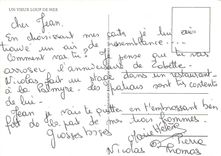 UN VIEUX LOUP DE MER
Cher Jean.
En choisissant mes cartes j'ai
trouvé un air de ressemblance...
Comment vas tu? Je pense que tu vas
arroser l'anniversaire de Babette.
Nicolas fait un stage dans un restaurant
à la Palmyre. Les patrons sont très contents
de lui.
Jean je vais te quitter en t'embrassant bien
fort de la part de mes trois hommes.
Grosses bises
Marie Hélène
Pierre
Nicolas Thomas